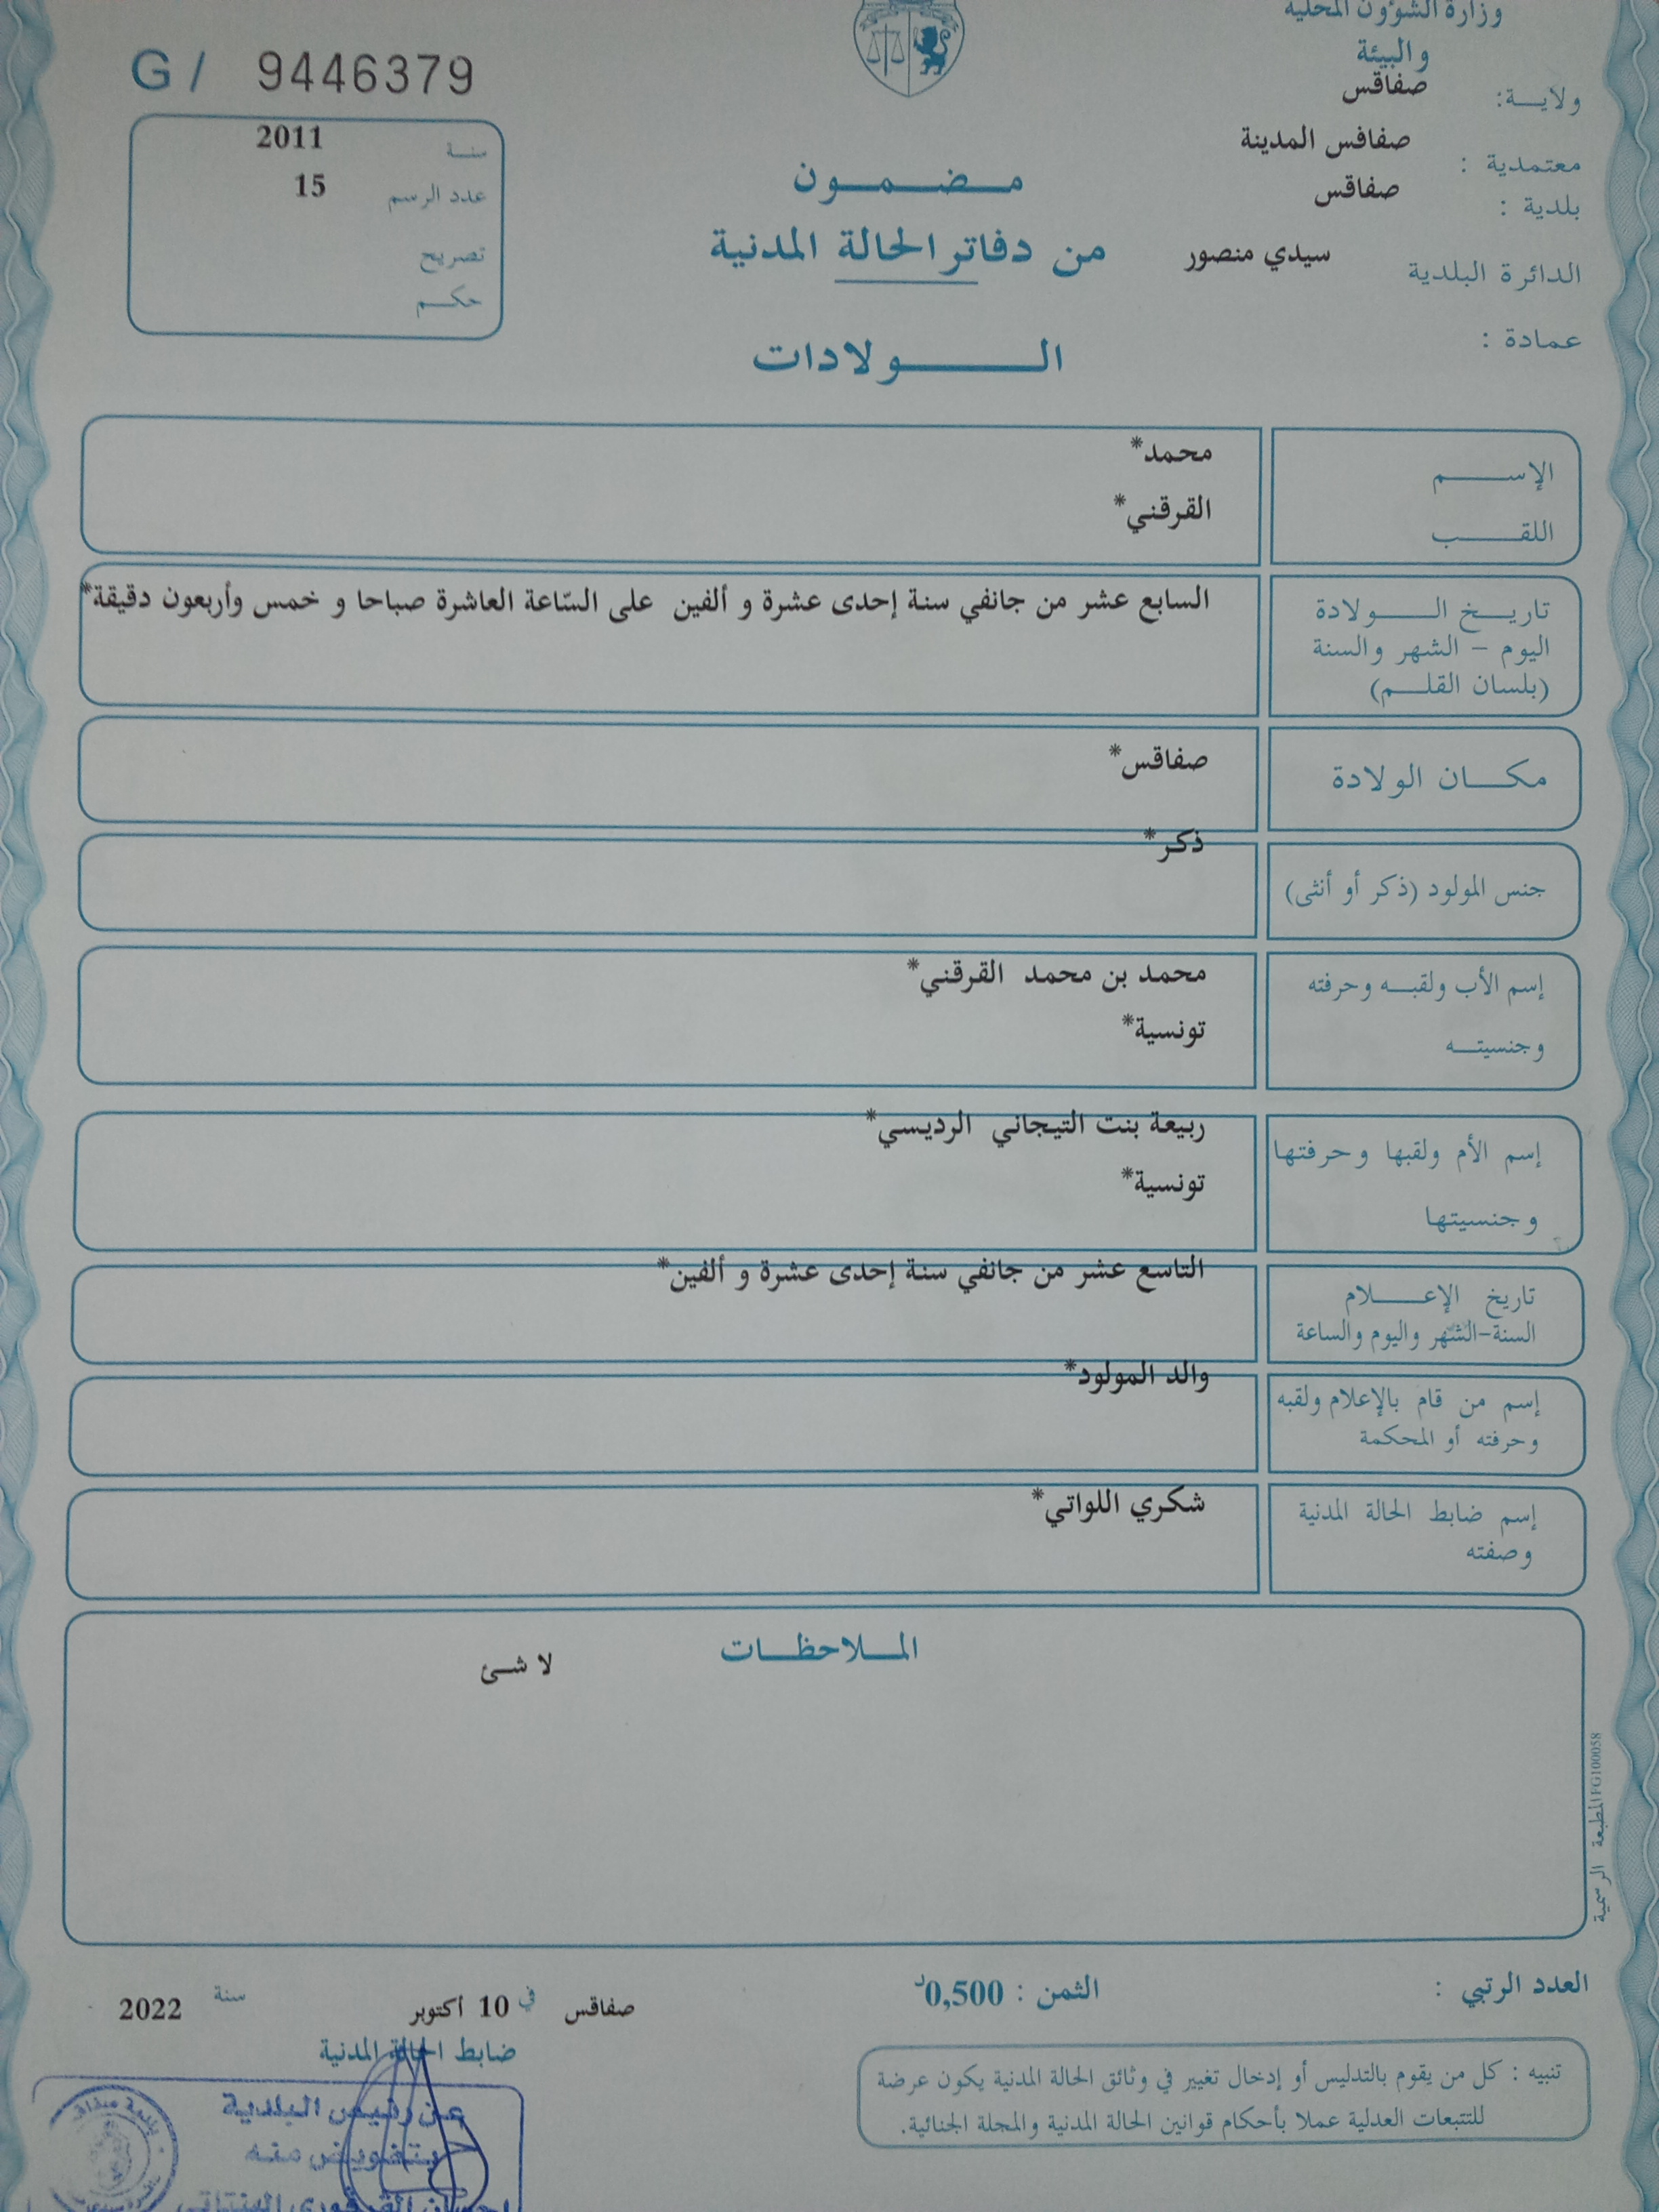 وزارة الشؤون المحلية
والبيئة
ولايـــة: صفاقس
معتمدية : صفافس المدينة
بلدية : صفاقس
الدائرة البلدية سيدي منصور
عمادة :
G / 9446379
سنـة 2011
عدد الرسم 15
تصريح
حكـــم
مـــضـــمـــون
من دفاتر الحالة المدنية
الـــــولادات
الإســـــم محمد*
اللقـــــب القرقني*
تاريـــخ الـــــولادة السابع عشر من جانفي سنة إحدى عشرة و ألفين على السّاعة العاشرة صباحا و خمس وأربعون دقيقة*
اليوم – الشهر والسنة
(بلسان القلـــم)
مكـــان الولادة صفاقس*
جنس المولود (ذكر أو أنثى) ذكر*
إسم الأب ولقبـــه وحرفته محمد بن محمد القرقني*
وجنسيتـــه تونسية*
إسم الأم ولقبها وحرفتها ربيعة بنت التيجاني الرديسي*
وجنسيتها تونسية*
تاريخ الإعـــــلام التاسع عشر من جانفي سنة إحدى عشرة و ألفين*
السنة-الشهر واليوم والساعة
إسم من قام بالإعلام ولقبه والد المولود*
وحرفته أو المحكمة
إسم ضابط الحالة المدنية شكري اللواتي*
وصفته
المـــلاحظـــات
لا شئ
المطبعة الرسمية FG100058
العدد الرتبي :
الثمن : 0,500د
صفاقس في 10 أكتوبر سنة 2022
ضابط الحالة المدنية
تنبيه : كل من يقوم بالتدليس أو إدخال تغيير في وثائق الحالة المدنية يكون عرضة
للتتبعات العدلية عملا بأحكام قوانين الحالة المدنية والمجلة الجنائية.
عن رئيس البلدية
وبتفويض منه